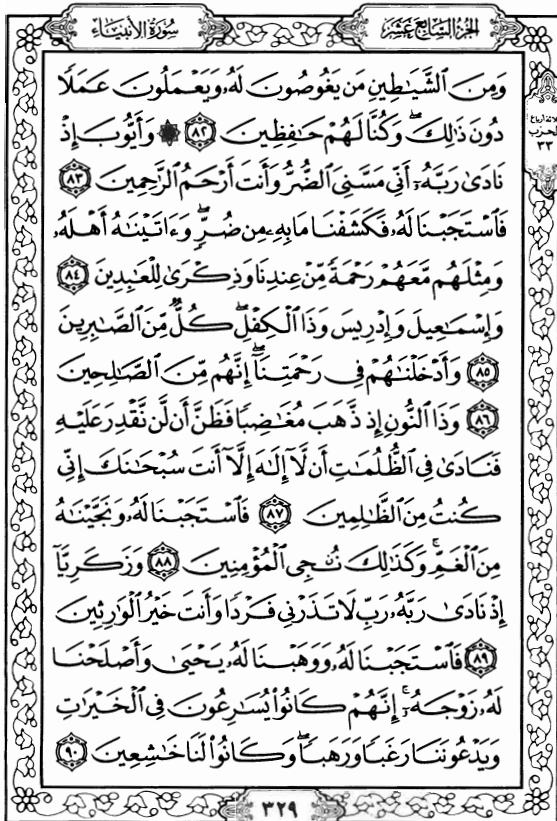 الجزء السابع عشر
سورة الأنبياء
وَمِنَ ٱلشَّيَٰطِينِ مَن يَغُوصُونَ لَهُۥ وَيَعْمَلُونَ عَمَلًا
دُونَ ذَٰلِكَ ۖ وَكُنَّا لَهُمْ حَٰفِظِينَ ٨٢ ۞ وَأَيُّوبَ إِذْ
نَادَىٰ رَبَّهُۥٓ أَنِّى مَسَّنِىَ ٱلضُّرُّ وَأَنتَ أَرْحَمُ ٱلرَّٰحِمِينَ ٨٣
فَٱسْتَجَبْنَا لَهُۥ فَكَشَفْنَا مَا بِهِۦ مِن ضُرٍّ ۖ وَءَاتَيْنَٰهُ أَهْلَهُۥ
وَمِثْلَهُم مَّعَهُمْ رَحْمَةً مِّنْ عِندِنَا وَذِكْرَىٰ لِلْعَٰبِدِينَ ٨٤
وَإِسْمَٰعِيلَ وَإِدْرِيسَ وَذَا ٱلْكِفْلِ ۖ كُلٌّ مِّنَ ٱلصَّٰبِرِينَ
٨٥ وَأَدْخَلْنَٰهُمْ فِى رَحْمَتِنَآ ۖ إِنَّهُم مِّنَ ٱلصَّٰلِحِينَ
٨٦ وَذَا ٱلنُّونِ إِذ ذَّهَبَ مُغَٰضِبًا فَظَنَّ أَن لَّن نَّقْدِرَ عَلَيْهِ
فَنَادَىٰ فِى ٱلظُّلُمَٰتِ أَن لَّآ إِلَٰهَ إِلَّآ أَنتَ سُبْحَٰنَكَ إِنِّى
كُنتُ مِنَ ٱلظَّٰلِمِينَ ٨٧ فَٱسْتَجَبْنَا لَهُۥ وَنَجَّيْنَٰهُ
مِنَ ٱلْغَمِّ ۚ وَكَذَٰلِكَ نُۨجِى ٱلْمُؤْمِنِينَ ٨٨ وَزَكَرِيَّآ
إِذْ نَادَىٰ رَبَّهُۥ رَبِّ لَا تَذَرْنِى فَرْدًا وَأَنتَ خَيْرُ ٱلْوَٰرِثِينَ
٨٩ فَٱسْتَجَبْنَا لَهُۥ وَوَهَبْنَا لَهُۥ يَحْيَىٰ وَأَصْلَحْنَا
لَهُۥ زَوْجَهُۥٓ ۚ إِنَّهُمْ كَانُوا۟ يُسَٰرِعُونَ فِى ٱلْخَيْرَٰتِ
وَيَدْعُونَنَا رَغَبًا وَرَهَبًا ۖ وَكَانُوا۟ لَنَا خَٰشِعِينَ ٩٠
أرباع
الحزب
٣٣
٣٢٩